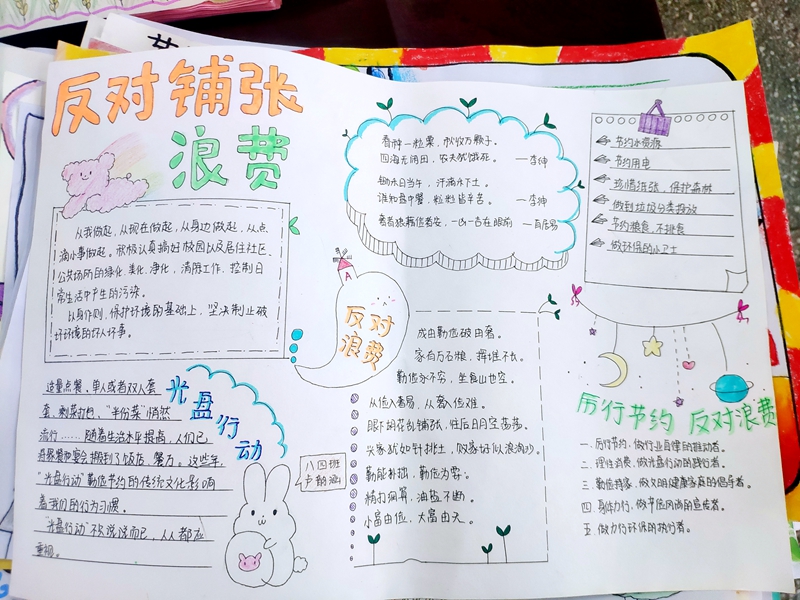 反对铺张
浪费
从我做起，从现在做起，从身边做起，从点
滴小事做起。积极认真搞好校园以及居住社区、
公共场所的绿化、美化、净化，清除工作，控制日
常生活中产生的污染。
以身作则，保护环境的基础上，坚决制止破
坏环境的坏人坏事。
适量点餐，单人或者双人套
套，剩菜打包，“半份菜”悄然
流行……随着生活水平提高，人们已
“光盘行动”勤俭节约的传统文化影响
着我们的行为习惯。
“光盘行动”不仅说说而已，人人都应
重视。
光盘行动
八四班
春种一粒粟，秋收万颗子。
四海无闲田，农夫犹饿死。——李绅
锄禾日当午，汗滴禾下土。
谁知盘中餐，粒粒皆辛苦。——李绅
反对
浪费
成由勤俭破由奢。
家有万石粮，挥堆不长。
勤俭永不穷，坐食山也空。
从俭入奢易，从奢入俭难。
眼下胡花乱铺张，往后日月空荡荡。
兴家犹如针挑土，败家好似浪淘沙。
勤能补拙，勤俭为要。
精打细算，油盐不断。
小富由俭，大富由天。
节约水资源
节约用电
珍惜纸张，保护森林
做到垃圾分类投放
节约粮食，不挑食
做环保的小卫士
厉行节约 反对浪费
一、厉行节约，做行业自律的推动者。
二、理性消费，做光盘行动的践行者。
三、勤俭持家，做文明健康家具的倡导者。
四、身体力行，做节俭风尚的宣传者。
五、做力行环保的执行者。